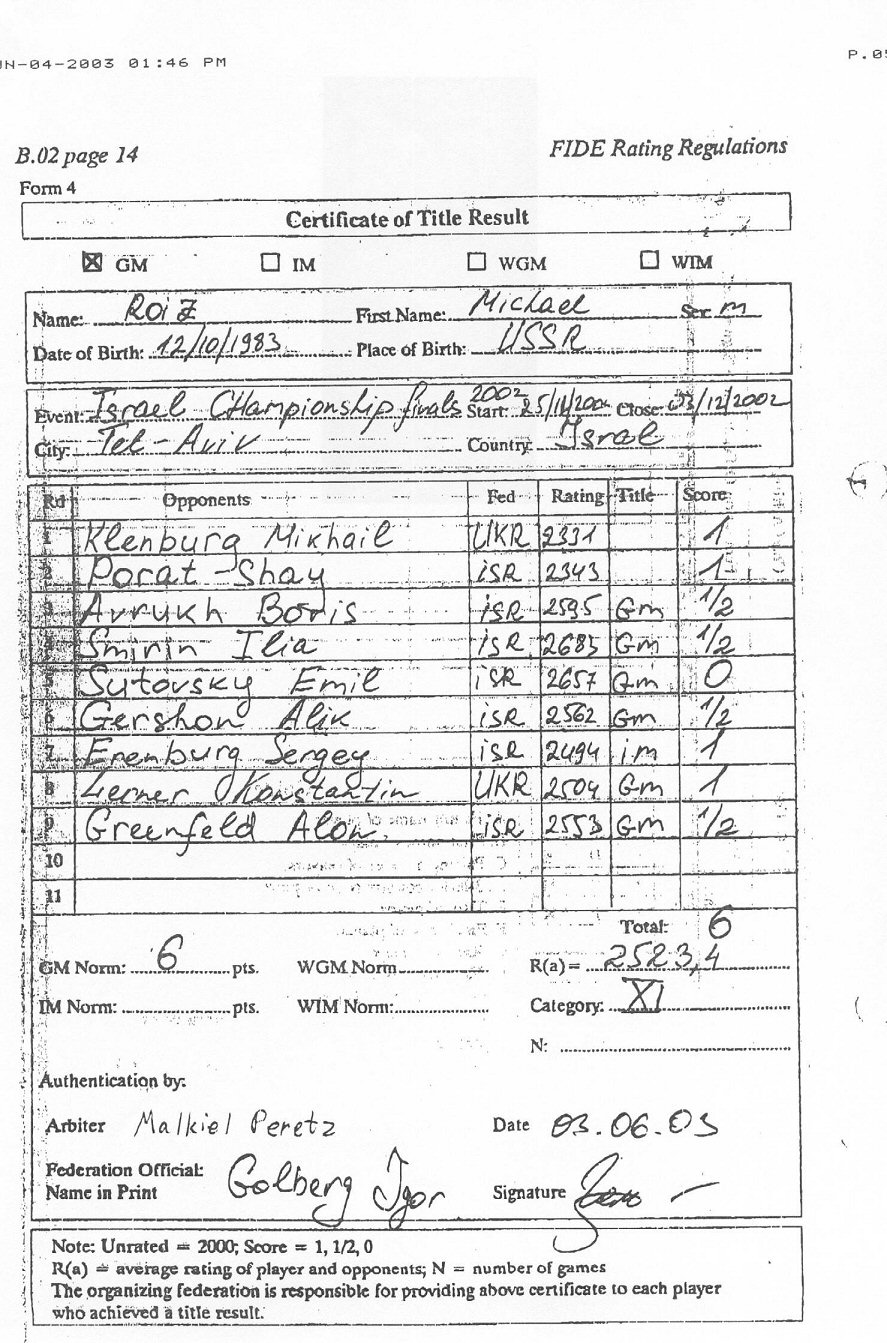 UN-04-2003 01:46 PM P.05
B.02 page 14 FIDE Rating Regulations
Form 4
Certificate of Title Result
☒ GM ☐ IM ☐ WGM ☐ WIM
Name: Roiz First Name: Michael Sex: m
Date of Birth: 12/10/1983 Place of Birth: USSR
Event: Israel CHampionship finals 2002 Start: 25/11/2002 Close: 03/12/2002
City: Tel-Aviv Country: Israel
Rd Opponents Fed Rating Title Score
1 Klenburg Mikhail UKR 2331 1
2 Porat-Shay iSR 2343 1
3 Avrukh Boris iSR 2595 Gm 1/2
4 Smirin Ilia iSR 2685 Gm 1/2
5 Sutovsky Emil iSR 2657 Gm 0
6 Gershon Alik iSR 2562 Gm 1/2
7 Erenburg Sergey iSR 2494 im 1
8 Lerner Konstantin UKR 2504 Gm 1
9 Greenfeld Alon iSR 2553 Gm 1/2
10
11
Total: 6
GM Norm: 6 pts. WGM Norm R(a) = 2523,4
IM Norm: pts. WIM Norm: Category: XI
N:
Authentication by:
Arbiter Malkiel Peretz Date 03.06.03
Federation Official:
Name in Print Golberg Igor Signature
Note: Unrated = 2000; Score = 1, 1/2, 0
R(a) = average rating of player and opponents; N = number of games
The organizing federation is responsible for providing above certificate to each player
who achieved a title result.